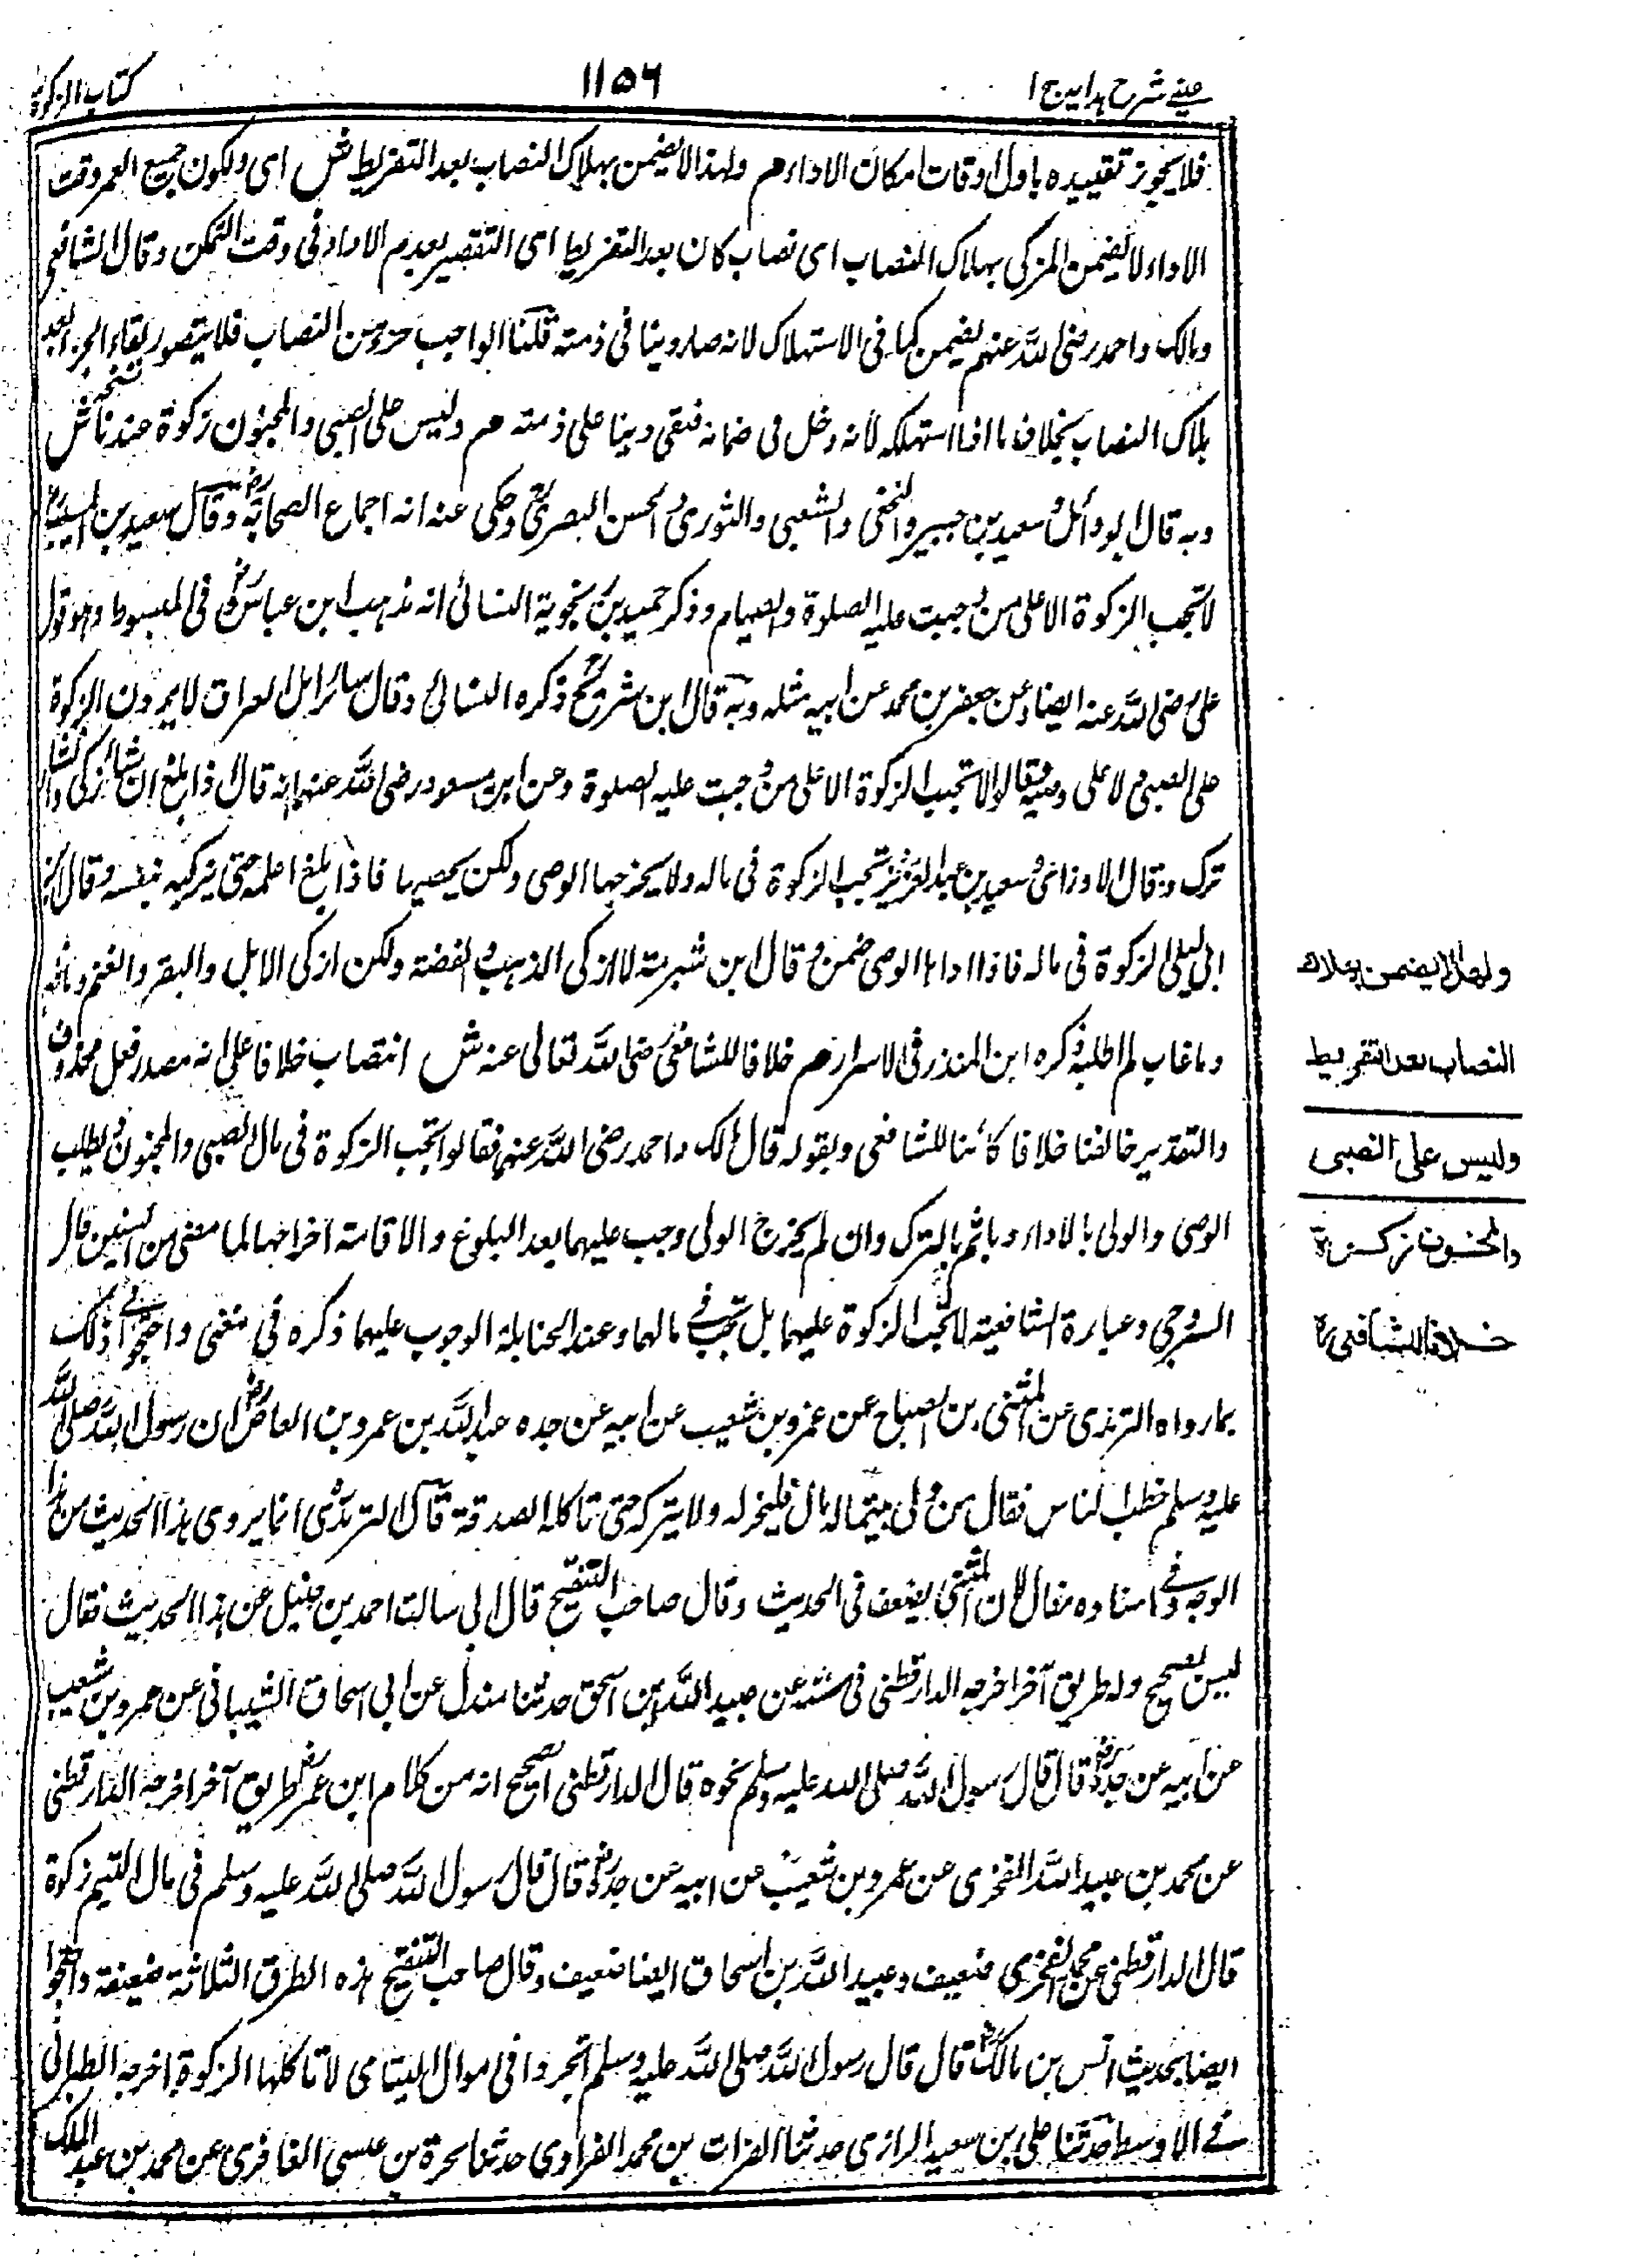 عینے شرح ہدایہ ج ا
۱۱۵۶
کتاب الزکوة
فلا یجوز تقییده باول اوقات امکان الاداء م ولهذا لا یضمن بهلاک النصاب بعد التفریط ش ای ولکون جمیع العمر وقت
الاداء لا یضمن المزکی بهلاک النصاب ای نصاب کان بعد التفریط ای التقصیر بعدم الاداء فی وقت التمکن وقال الشافعی
ومالک واحمد رضی الله عنهم یضمن کما فی الاستهلاک لانه صار دینا فی ذمته قلنا الواجب جزء من النصاب فلا یتصور بقاء الجزء بعد
هلاک النصاب بخلاف ما اذا استهلکه لانه دخل فی ضمانه فبقی دینا علی ذمته م ولیس علی الصبی والمجنون زکوة عندنا ش
وبه قال ابو وائل وسعید بن جبیر والنخعی والشعبی والثوری والحسن البصری وحکی عنه انه اجماع الصحابة وقال سعید بن المسیب
لا تجب الزکوة الا علی من وجبت علیه الصلوة والصیام وذکر حمید بن نجویة النسائی انه مذهب ابن عباس فی المبسوط وهو قول
علی رضی الله عنه ایضا وعن جعفر بن محمد عن ابیه مثله وبه قال ابن شریح ذکره النسائی وقال سائر اهل العراق لا یرون الزکوة
علی الصبی لا علی وصیه قالوا لا تجب الزکوة الا علی من وجبت علیه الصلوة وعن ابن مسعود رضی الله عنه انه قال اذا بلغ ان شاء زکی وان شاء
ترک وقال الاوزاعی وسعید بن عبد العزیز تجب الزکوة فی ماله ولا یخرجها الوصی ولکن یحصیها فاذا بلغ اعلمه حتی یزکیه بنفسه وقال ابن
ابی لیلی الزکوة فی ماله فاذا اداها الوصی ضمن وقال ابن شبرمة لا ازکی الذهب والفضة ولکن ازکی الابل والبقر والغنم
وما غاب لم اطلبه ذکره ابن المنذر فی الاسرار م خلافا للشافعی رضی الله تعالی عنه ش انتصاب خلافا علی انه مصدر فعل محذوف
والتقدیر خالفنا خلافا کائنا للشافعی وبقوله قال مالک واحمد رضی الله عنهم فقالوا تجب الزکوة فی مال الصبی والمجنون ویطلب
الوصی والولی بالاداء ویاثم بالترک وان لم یخرج الولی وجب علیهما بعد البلوغ والافاقة اخراجها لما مضی من السنین قال
السروجی وعبارة الشافعیة لا تجب الزکوة علیهما بل تجب فے مالهما وعند الحنابلة الوجوب علیهما ذکره فی المغنی واحتجوا فے ذلک
بما رواه الترمذی عن المثنی بن الصباح عن عمرو بن شعیب عن ابیه عن جده عبد الله بن عمرو بن العاص ان رسول الله صلی الله
علیه وسلم خطب الناس فقال من ولی یتیما له مال فلیتجر له ولا یترکه حتی تاکله الصدقة قال الترمذی انما یروی هذا الحدیث من هذا
الوجه وفے اسناده مقال لان المثنی یضعف فی الحدیث وقال صاحب التنقیح قال ابی سالت احمد بن حنبل عن هذا الحدیث فقال
لیس بصحیح وله طریق آخر اخرجه الدارقطنی فی سننه عن عبید الله بن اسحق حدثنا مندل عن ابی اسحاق الشیبانی عن عمرو بن شعیب
عن ابیه عن جده قال قال رسول الله صلی الله علیه وسلم نحوه قال الدارقطنی الصحیح انه من کلام ابن عمر طریق آخر اخرجه الدارقطنی
عن محمد بن عبید الله الفخزی عن عمرو بن شعیب عن ابیه عن جده قال قال رسول الله صلی الله علیه وسلم فی مال الیتیم زکوة
قال الدارقطنی عن محمد الفخزی ضعیف وعبید الله بن اسحاق ایضا ضعیف وقال صاحب التنقیح هذه الطرق الثلاثة ضعیفة واحتجوا
ایضا بحدیث انس بن مالک قال قال رسول الله صلی الله علیه وسلم اتجروا فی اموال الیتامی لا تاکلها الزکوة اخرجه الطبرانی
فے الاوسط حدثنا علی بن سعید الرازی حدثنا الفرات بن محمد الفراوی حدثنا سحرة بن عیسی الغافری عن محمد بن عبد الملک
ولهذا لا یضمن بهلاک
النصاب بعد التفریط
ولیس علی الصبی
والمجنون زکوة
خلافا للشافعی ره